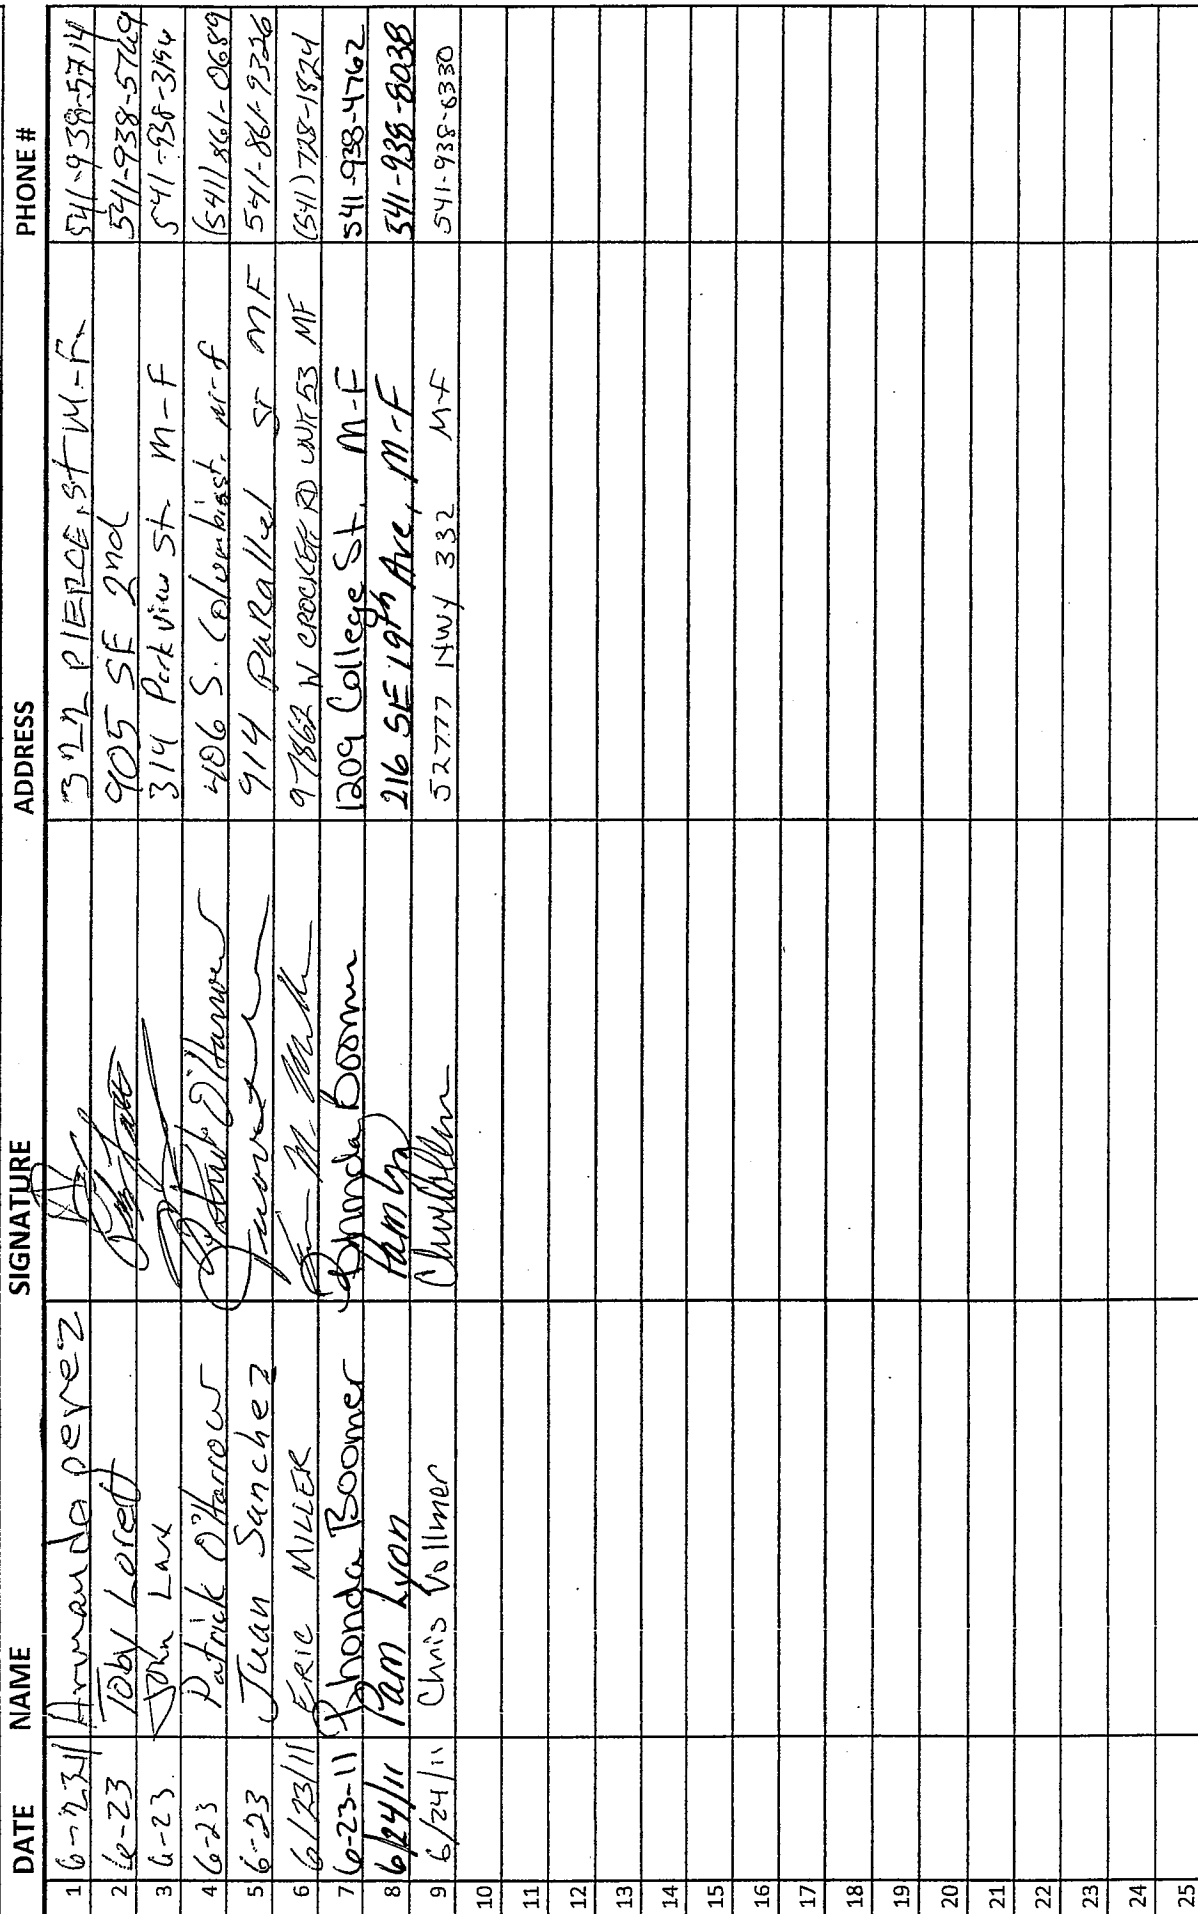 DATE NAME SIGNATURE ADDRESS PHONE #
1 6-23-11 Armando perez 322 PIERCE, ST M-F. 541-938-5714
2 6-23 Toby Lorett 905 SE 2nd 541-938-5769
3 6-23 John Lax 314 Parkview St. M-F 541-938-3194
4 6-23 Patrick O'Harrow Patrick O'Harrow 406 S. Columbia st. m-f (541) 861-0689
5 6-23 Juan Sanchez 914 Parallel St MF 541-861-9326
6 6/23/11 ERIC MILLER 97862 W CROCKETT RD UNIT 53 MF (541) 728-1824
7 6-23-11 Rhonda Boomer Rhonda Boomer 1209 College St. M-F 541-938-4762
8 6/24/11 Pam Lyon Pam Lyon 216 SE 19th Ave, M-F 541-938-8038
9 6/24/11 Chris Vollmer 52777 HWY 332 M-F 541-938-6330
10
11
12
13
14
15
16
17
18
19
20
21
22
23
24
25